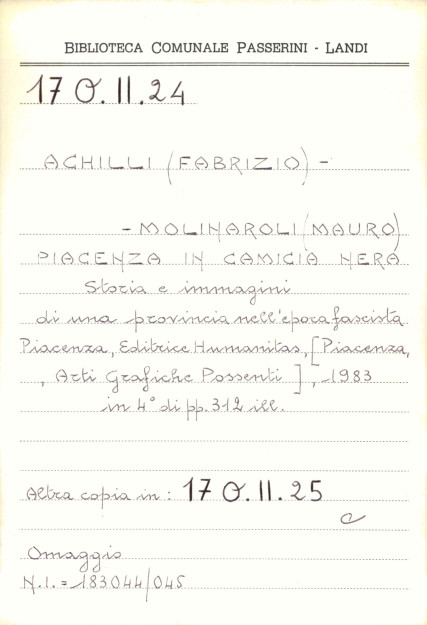 BIBLIOTECA COMUNALE PASSERINI - LANDI
17 O.II.24
ACHILLI (FABRIZIO) -
- MOLINAROLI (MAURO)
PIACENZA IN CAMICIA NERA
Storia e immagini
di una provincia nell'epoca fascista.
Piacenza, Editrice Humanitas, [Piacenza,
, Arti Grafiche Possenti], 1983
in 4° di pp. 312 ill.
Altra copia in: 17 O.II.25
a
Omaggio
N.I. = 183044/045